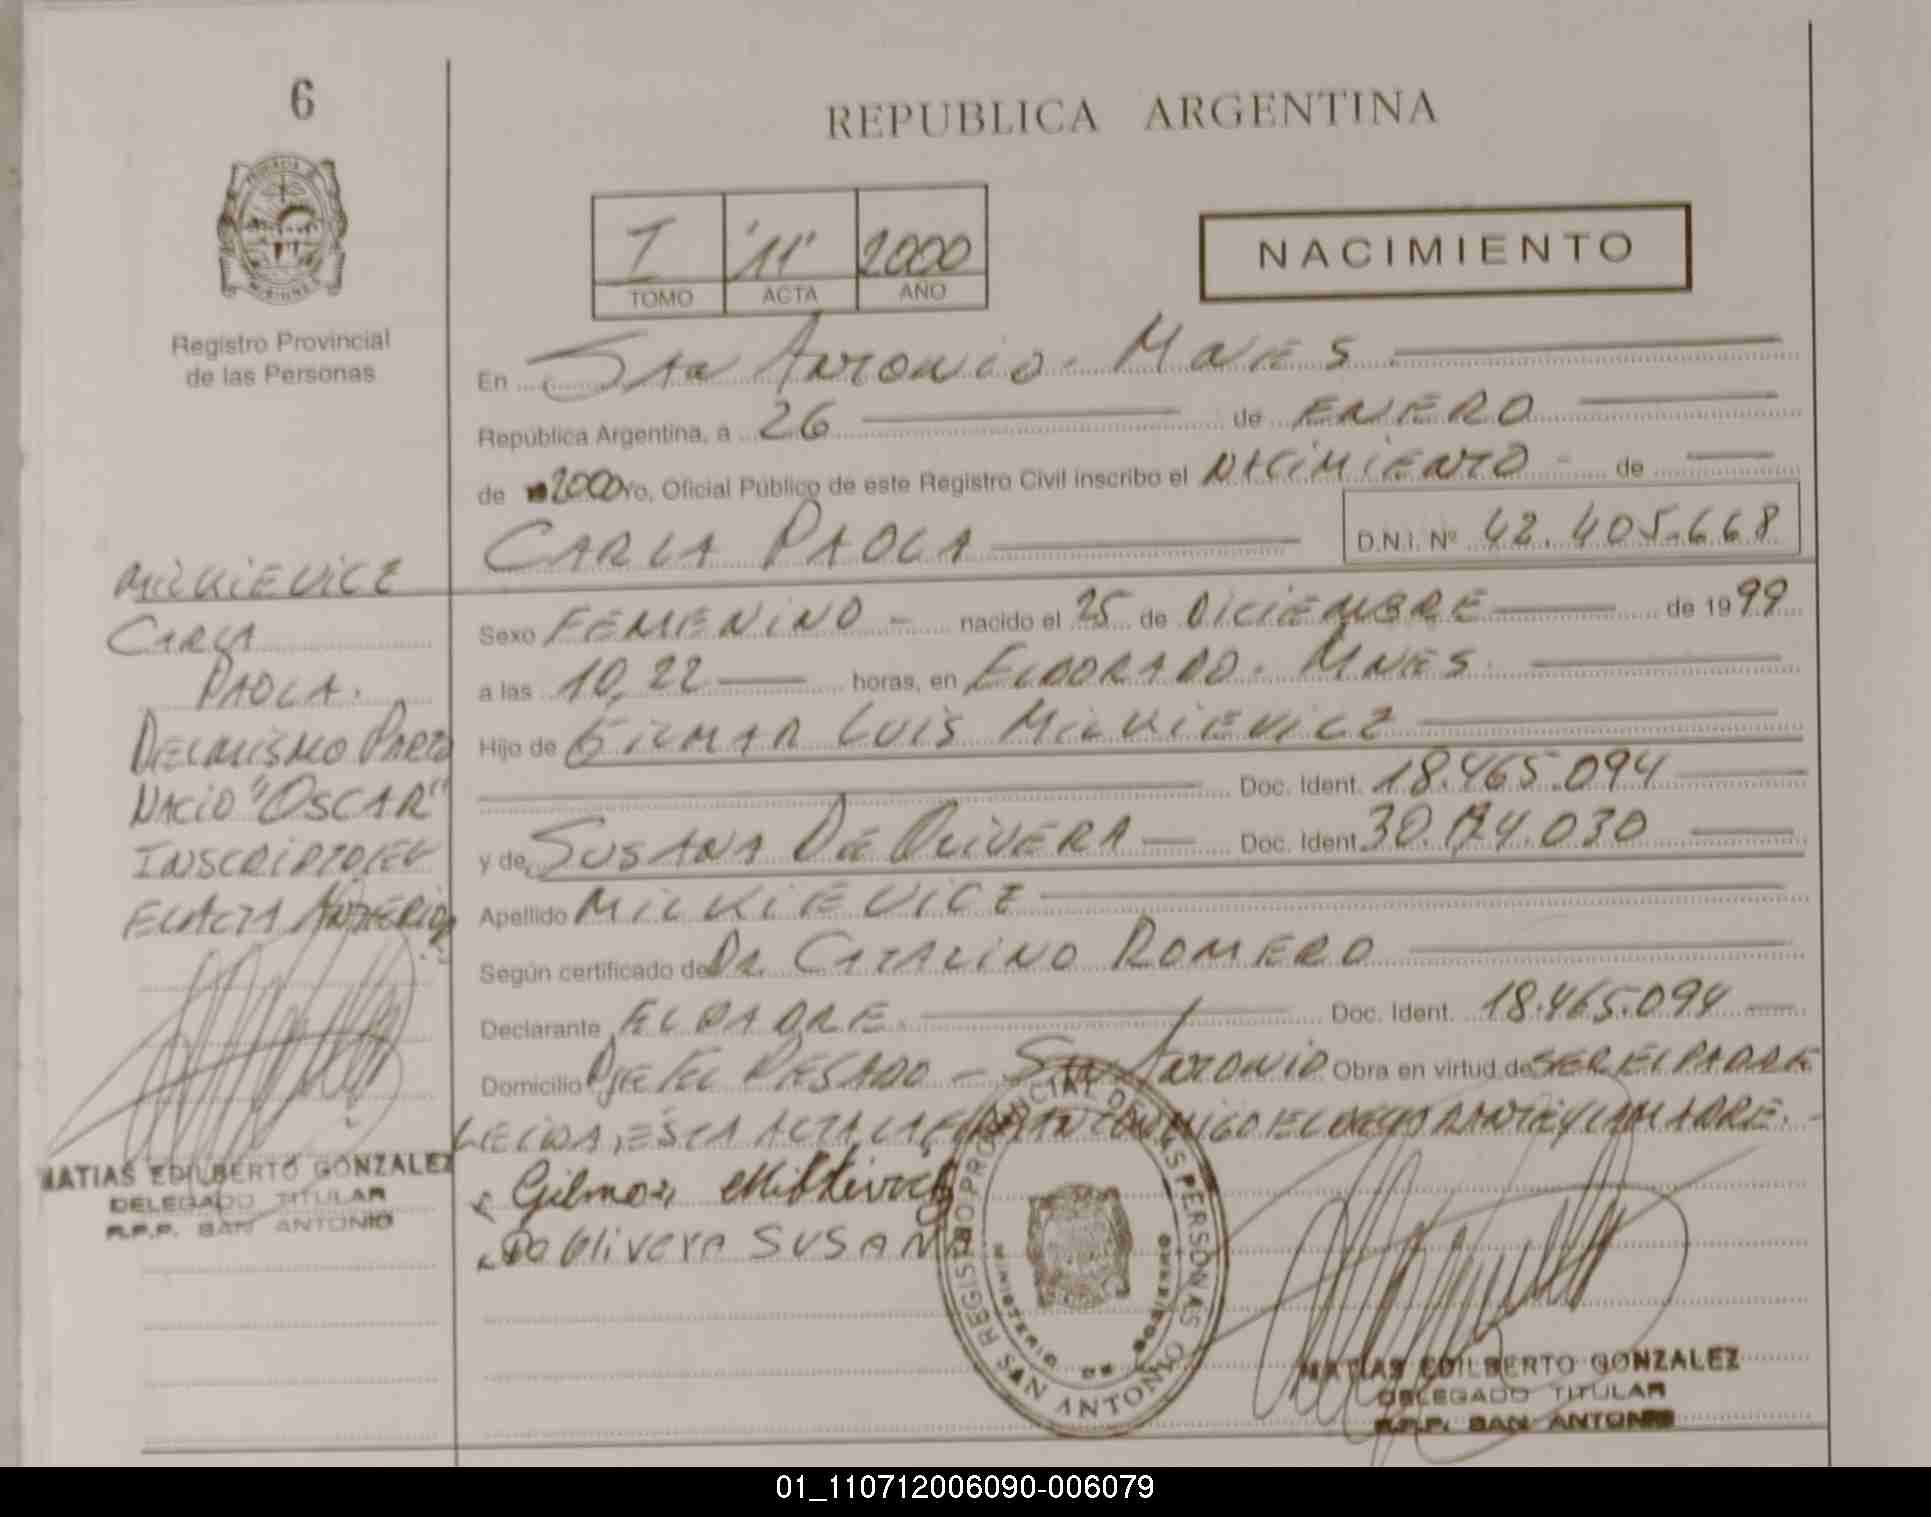 6
REPUBLICA ARGENTINA
I '11' 2000
TOMO ACTA AÑO
NACIMIENTO
Registro Provincial
de las Personas
En Sta Antonio. Mnes
República Argentina, a 26 de ENERO
de 2000 Yo, Oficial Público de este Registro Civil inscribo el NACIMIENTO - de
CARLA PAOLA D.N.I. Nº 42.405.668
MILKIEVICZ
CARLA
PAOLA.
DEL MISMO PARTO
NACIO "OSCAR"
INSCRIPTO EN
EL ACTA ANTERIOR
MATIAS EDILBERTO GONZALEZ
DELEGADO TITULAR
R.P.P. SAN ANTONIO
Sexo FEMENINO - nacido el 25 de DICIEMBRE de 1999
a las 10,22 horas, en ELDORADO. MNES.
Hijo de GILMAR LUIS MILKIEVICZ
Doc. Ident. 18.465.094
y de SUSANA DE OLIVERA Doc. Ident. 30.174.030
Apellido MILKIEVICZ
Según certificado de DR. CATALINO ROMERO
Declarante EL PADRE. Doc. Ident. 18.465.094
Domicilio PJE EL PESADO - Sta ANTONIO Obra en virtud de SER EL PADRE
LEIDA, ESTA ACTA LA FIRMAN CONMIGO EL Y LA MADRE. -
Gilmar Milkievicz
De Olivera SUSANA
REGISTRO PROVINCIAL DE LAS PERSONAS
MINISTERIO DE GOBIERNO
SAN ANTONIO
MATIAS EDILBERTO GONZALEZ
DELEGADO TITULAR
R.P.P. SAN ANTONIO
01_110712006090-006079